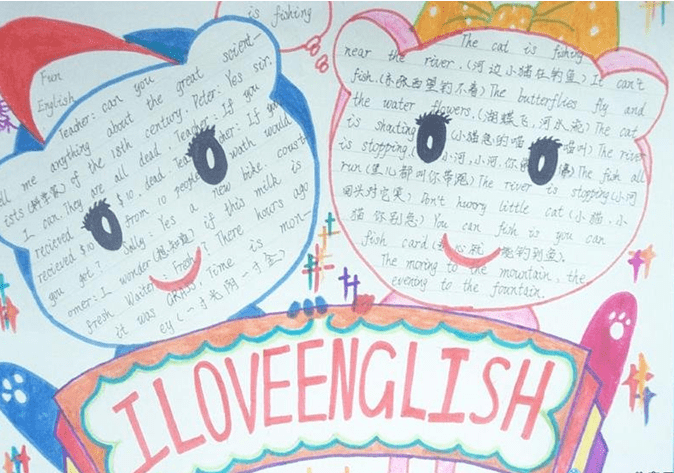 is fishing
Fun
English
Teacher: can you
tell me anything about the great scient-
ists (科学家) of the 18th century Peter: Yes sir.
I can. They are all dead. Teacher: If you
recieved $10 from 10 people
you got? Sally: Yes a new bike. coust-
omer: I wonder if this milk is
fresh. Waiter: Fresh? There hours ago
it was GRASS. Time is mon-
ey (一寸光阴一寸金)
The cat is fishing
near the river. (河边小猫在钓鱼) It can't
fish. (东张西望钓不着) The butterflies fly and
the water flowers. (蝴蝶飞,河水流) The cat
is shouting (小猫急的喵喵叫) The river
is stopping. (小河,小河你 The fish all
run (鱼儿都叫你带跑) The river is stopping (小河
回头对它笑) Don't hworry little cat (小猫,小
猫你别急) You can fish is you can
fish card
The moring to the mountain, the
evening to the fountain.
ILOVEENGLISH